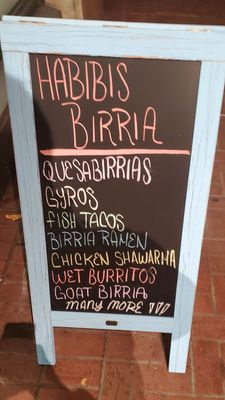 HABIBIS
BIRRIA
QUESABIRRIAS
GYROS
FISH TACOS
BIRRIA RAMEN
CHICKEN SHAWARMA
WET BURRITOS
GOAT BIRRIA
MANY MORE